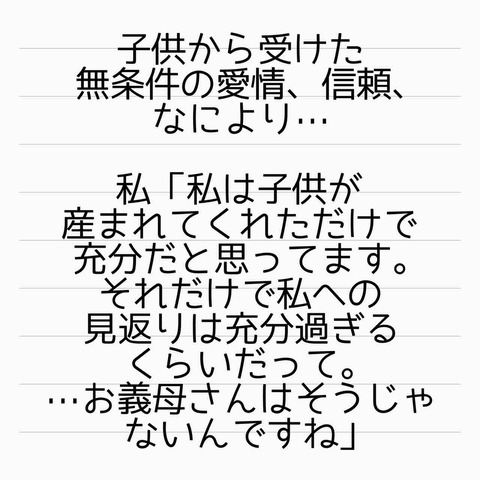 子供から受けた
無条件の愛情、信頼、
なにより…
私「私は子供が
産まれてくれただけで
充分だと思ってます。
それだけで私への
見返りは充分過ぎる
くらいだって。
…お義母さんはそうじゃ
ないんですね」